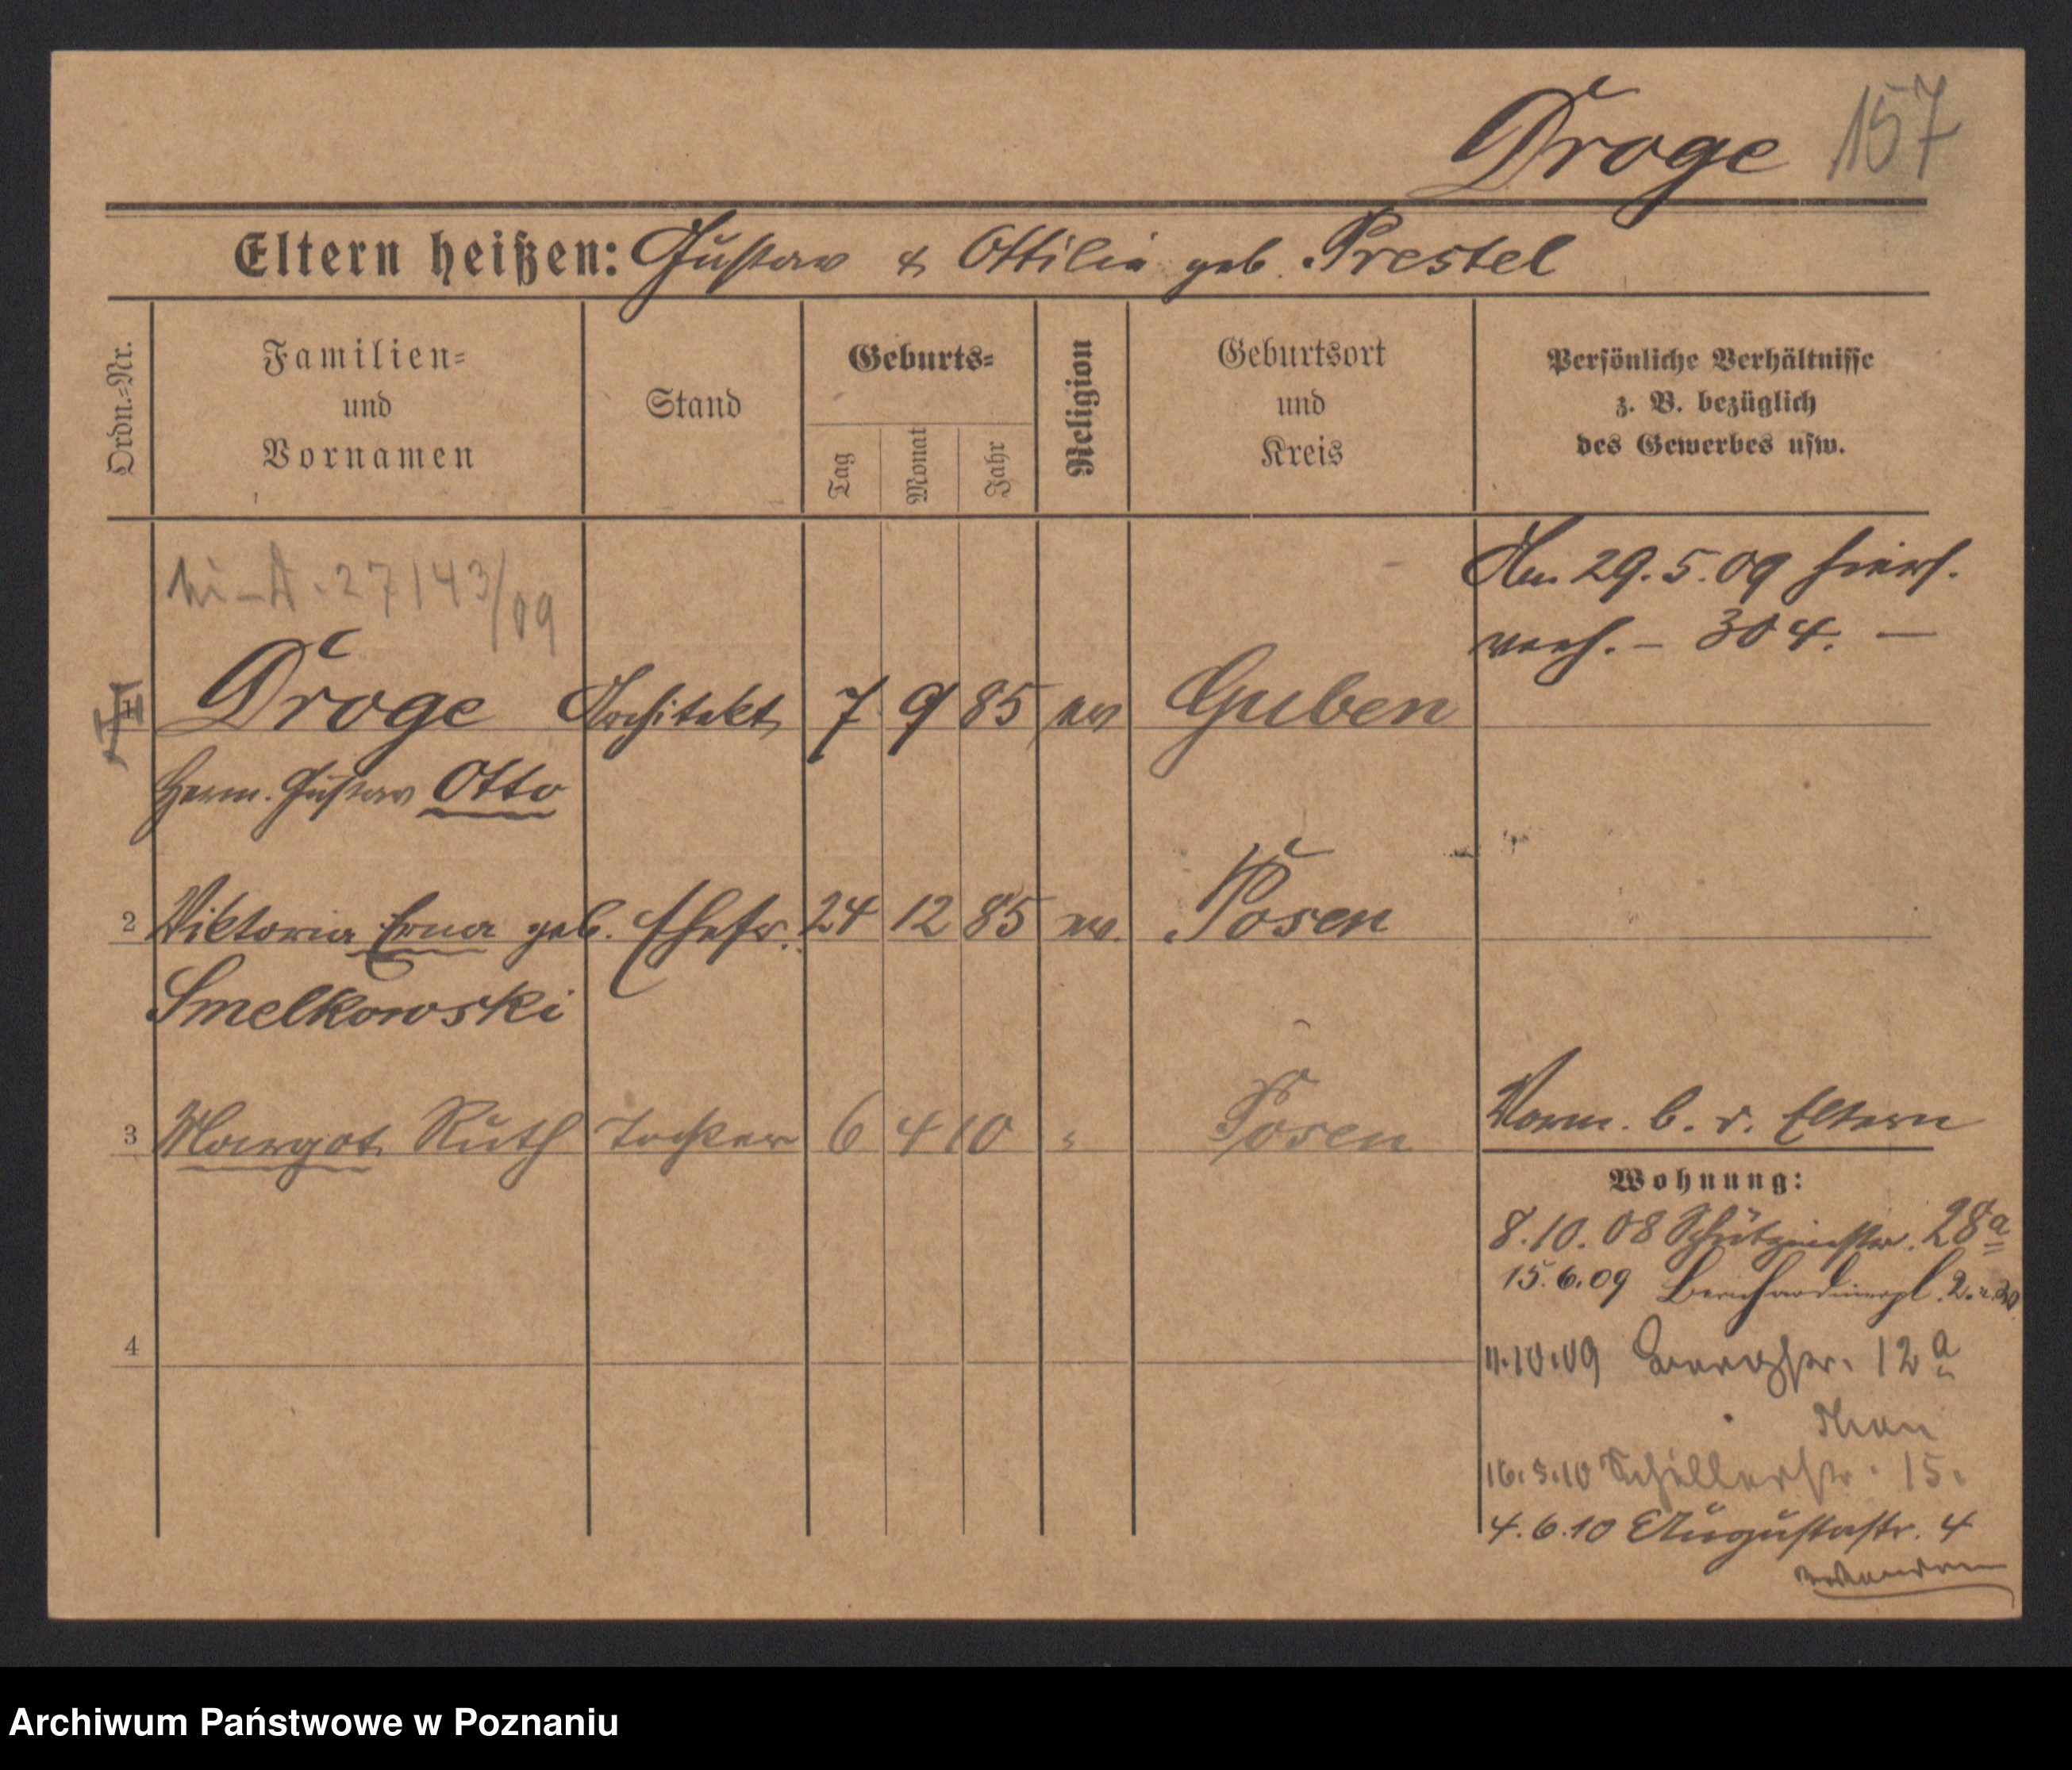 Droge 157
Eltern heißen: Gustav & Ottilie geb. Prestel
Ordn.-Nr.
Familien-
und
Vornamen
Stand
Geburts-
Tag
Monat
Jahr
Religion
Geburtsort
und
Kreis
Persönliche Verhältnisse
z. B. bezüglich
des Gewerbes usw.
27143/09
Am 29.5.09 hiers.
verh. – 304. –
1 Droge Architekt 7 9 85 ev Guben
Herm. Gustav Otto
2 Viktoria Erna geb. Ehefr. 24 12 85 ev. Posen
Smelkowski
3 Margot Ruth Tochter 6 4 10 " Posen
Vorm. b. d. Eltern
Wohnung:
8.10.08 Schützenstr. 28a
15.6.09 Bernhardinerpl. 2.
4
11.10.09 12a
16.5.10 Schillerstr. 15.
4.6.10 Augustastr. 4
Archiwum Państwowe w Poznaniu